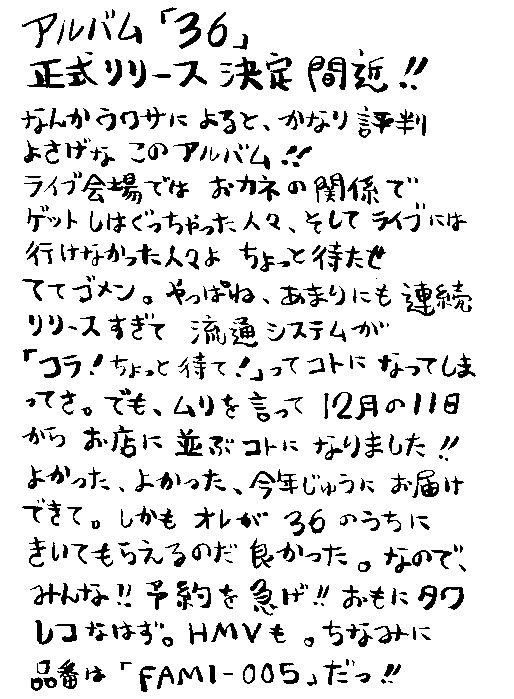 アルバム「36」
正式リリース決定間近!!
なんかウワサによると、かなり評判
よさげな このアルバム!!
ライブ会場では おカネの関係で
ゲットしはぐっちゃった人々、そして ライブには
行けなかった人々よ ちょっと待たせ
ててゴメン。やっぱね、あまりにも連続
リリースすぎて 流通システムが
「コラ!ちょっと待て!」ってコトに なってしま
ってさ。でも、ムリを言って 12月の11日
から お店に 並ぶコトに なりました!!
よかった、よかった、今年じゅうに お届け
できて。しかも オレが 36 のうちに
きいてもらえるのだ 良かった。なので、
みんな!! 予約を 急げ!! おもにタワ
レコなはず。HMVも。ちなみに
品番は「FAMI-005」だっ!!